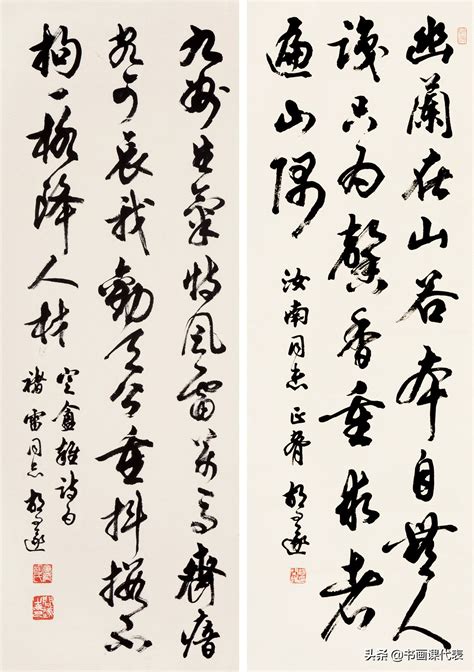 幽蘭在山谷本自無人
識只为馨香重求者
遍山隅
汝南同志正 胡问遂
九州生氣恃風雷万馬齊瘖
究可哀我勸天公重抖擻不
拘一格降人材
定盦雜詩句
褚雷同志 胡问遂
头条 @书画课代表